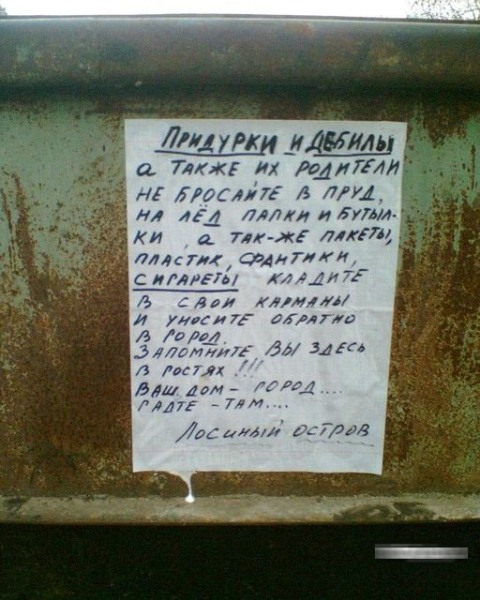 ПРИДУРКИ И ДЕБИЛЫ
а ТАКЖЕ ИХ РОДИТЕЛИ
НЕ БРОСАЙТЕ В ПРУД,
НА ЛЁД ПАПКИ И БУТЫЛ-
КИ, а ТАК-ЖЕ ПАКЕТЫ,
ПЛАСТИК, ФАНТИКИ,
СИГАРЕТЫ КЛАДИТЕ
В СВОИ КАРМАНЫ
И УНОСИТЕ ОБРАТНО
В ГОРОД.
ЗАПОМНИТЕ ВЫ ЗДЕСЬ
В ГОСТЯХ!!!
ВАШ ДОМ - ГОРОД....
ГАДТЕ - ТАМ....
ЛОСИНЫЙ ОСТРОВ